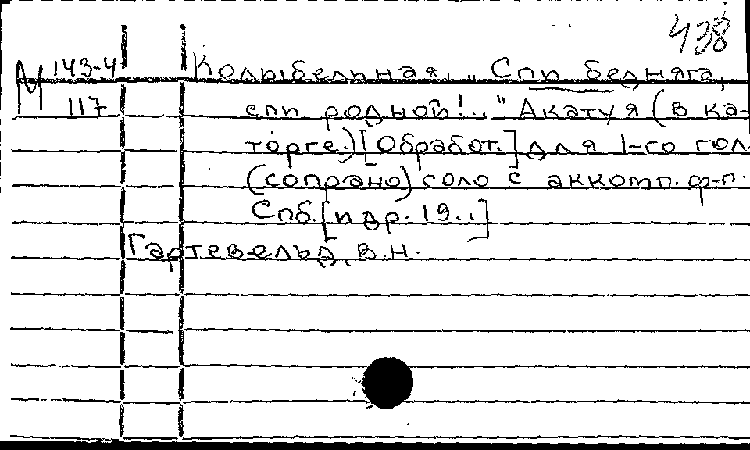 438
М 143-4 Колыбельная. „Спи бедняга,
117 спи родной!.." Акатуя (в ка-
торге.) [Обработ.] для 1-го гол.
(сопрано) соло с аккомп. ф-п.
Спб. [и др. 19..]
Гартевельд, В.Н.